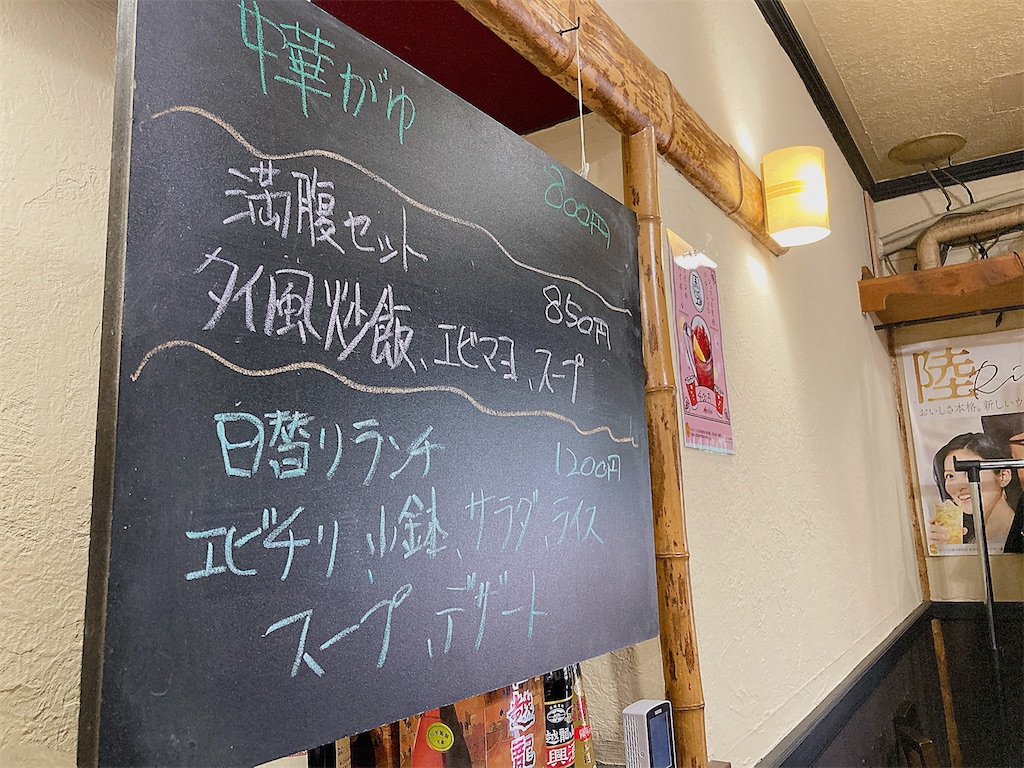 中華がゆ
800円
満腹セット
850円
タイ風炒飯、エビマヨ、スープ
日替りランチ
1200円
エビチリ、小鉢、サラダ、ライス
スープ、デザート
陸
おいしさ本格。新しいウ
越龍
越龍